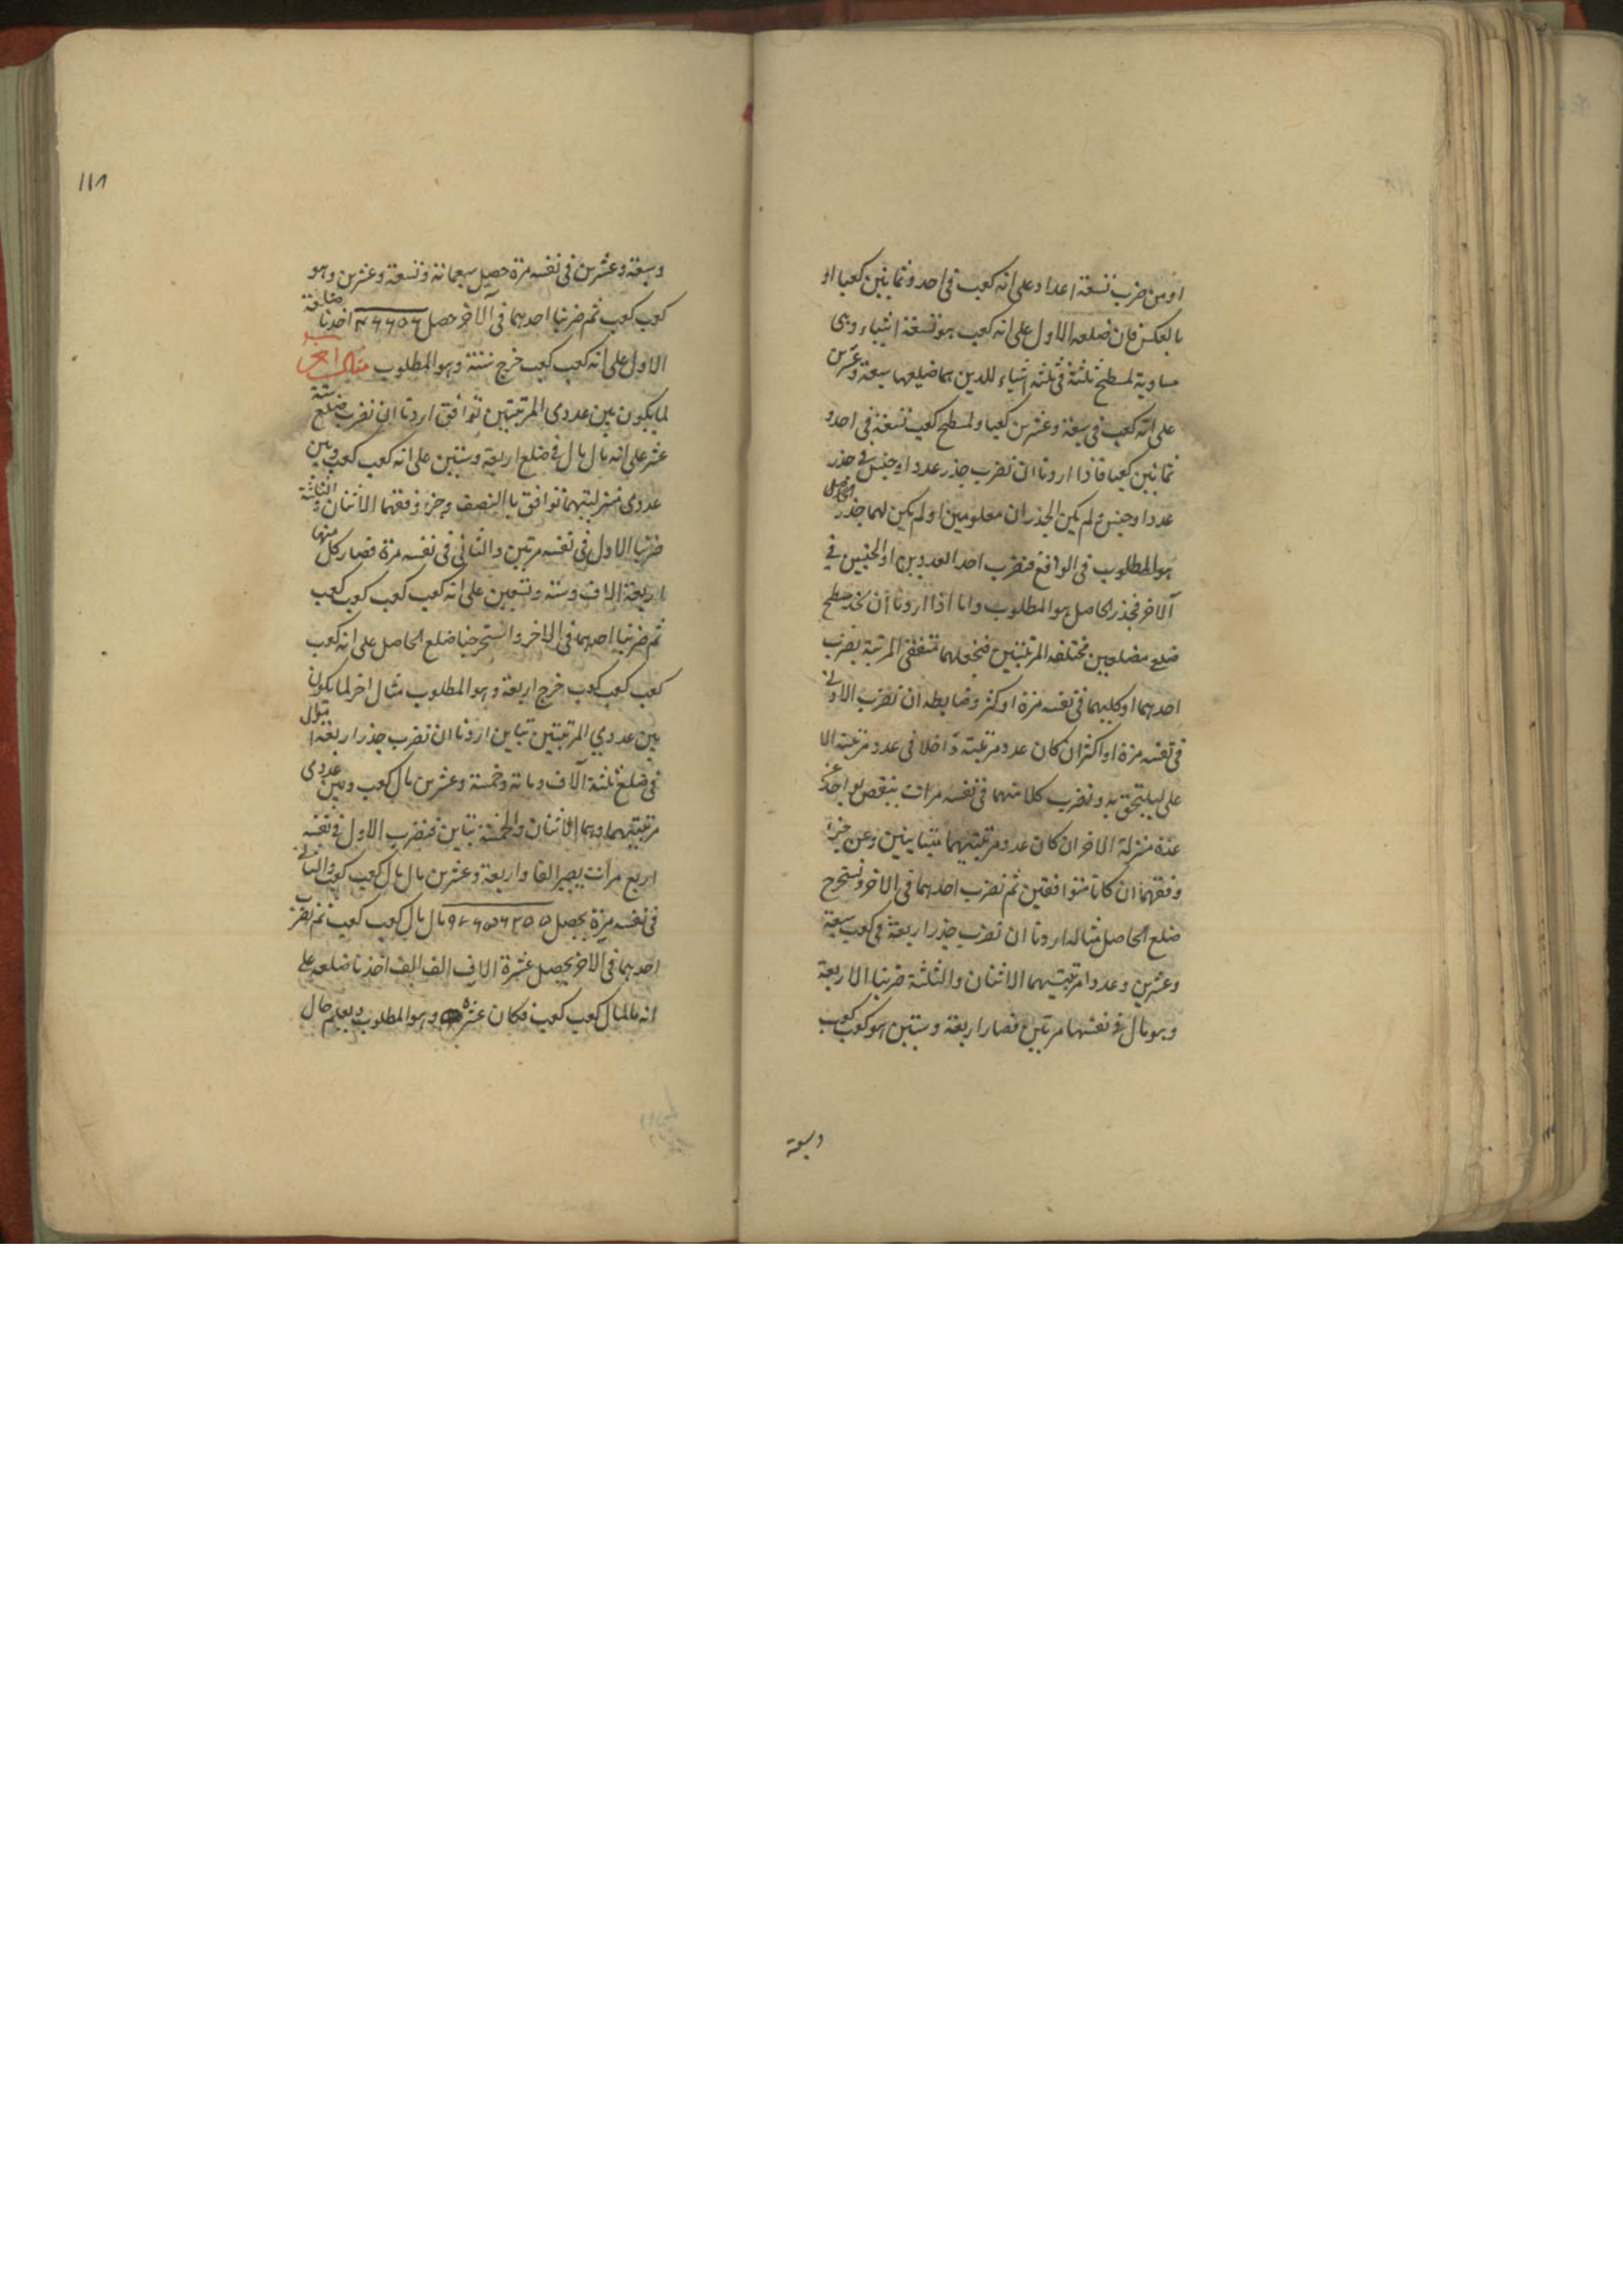 او من ضرب تسعة اعداد على انه كعب فى احد وثمانين كعبا او
بالعكس فان ضلعه الاول على انه كعب هو تسعة اشياء وهى
مساوية لمسطح ثلثة فى ثلثة اشياء للذين هما ضلعها سبعة وعشرين
على انه كعب فى سبعة وعشرين كعبا ولمسطح كعب تسعة فى احد و
ثمانين كعبا فاذا اردنا ان نضرب جذر عدد او جنس فى جذر
عدد او جنس ولم يكن الجذران معلومين او لم يكن لهما جذر الحاصل
هو المطلوب فى الواقع فنضرب احد العددين او الجنسين فى
الاخر فجذر الحاصل هو المطلوب واما اذا اردنا ان نخذ مسطح
ضلعى مضلعين مختلفه المرتبتين فنجعلهما متفقى المرتبة بضرب
احدهما او كليهما فى نفسه مرة او كثر وضابطه ان نضرب الادنى
فى نفسه مرة او اكثر ان كان عدد مرتبته داخلا فى عدد مرتبته الا
على ليلتحق به ونضرب كلا منهما فى نفسه مرات بنقص بواحد عن
عدة منزلة الاخر ان كان عدد مرتبتيهما متباينين وعن جزء
وفقهما ان كانا متوافقين ثم نضرب احدهما فى الاخر ونستخرج
ضلع الحاصل مثاله اردنا ان نضرب جذر اربعة فى كعب سبعة
وعشرين وعددا مرتبتيهما الاثنان والثلثة ضربنا الاربعة
وهو مال فى نفسها مرتين فصار اربعة وستين هو كعب كعب
وسبعة
١١٨
وسبعة وعشرين فى نفسه مرة حصل سبعمائة وتسعة وعشرين وهو
كعب كعب ثم ضربنا احدهما فى الاخر حصل ٤٦٦٥٦ اخذنا ضلعه
الاول على انه كعب كعب خرج ستة وهو المطلوب مثال اخر
لما يكون بين عددى المرتبتين توافق اردنا ان نضرب ضلع ستة
عشر على انه مال مال فى ضلع اربعة وستين على انه كعب كعب وبين
عددى منزلتيهما توافق بالنصف وجزء وفقهما الاثنان والثلثة
ضربنا الاول فى نفسه مرتين والثانى فى نفسه مرة فصار كل منهما
اربعة الاف وستة وتسعين على انه كعب كعب كعب كعب
ثم ضربنا احدهما فى الاخر واستخرجنا ضلع الحاصل على انه كعب
كعب كعب كعب خرج اربعة وهو المطلوب مثال اخر لما يكون
بين عددي المرتبتين تباين اردنا ان نضرب جذر اربعة اموال
فى ضلع ثلثة آلاف ومائة وخمسة وعشرين مال كعب وبين عددى
مرتبتيهما وهما الاثنان والخمسة تباين فنضرب الاول فى نفسه
اربع مرات يصير الفا واربعة وعشرين مال مال كعب كعب والثانى
فى نفسه مرة يحصل ٩٧٦٥٦٢٥ مال مال كعب كعب ثم نضرب
احدهما فى الاخر يحصل عشرة الاف الف الف اخذنا ضلعه على
انه مال مال كعب كعب فكان عشرة وهو المطلوب ويعلم حال